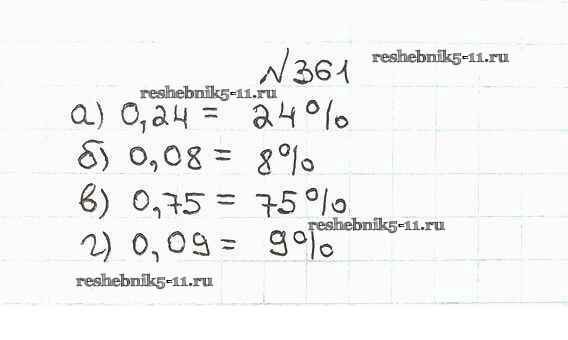 №361
reshebnik5-11.ru
reshebnik5-11.ru
а) 0,24 = 24%
б) 0,08 = 8%
в) 0,75 = 75%
reshebnik5-11.ru
г) 0,09 = 9%
reshebnik5-11.ru